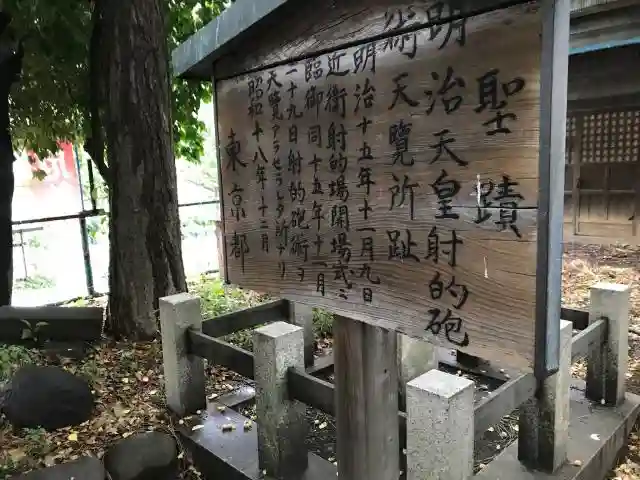 聖蹟
明治天皇射的砲
術天覽所趾
明治十五年十一月九日
近衛射的場開場式ニ
臨御同十五年十二月
二十九日射的砲術ヲ
天覽アラセラレタル所ナリ
昭和十八年十二月
東京都